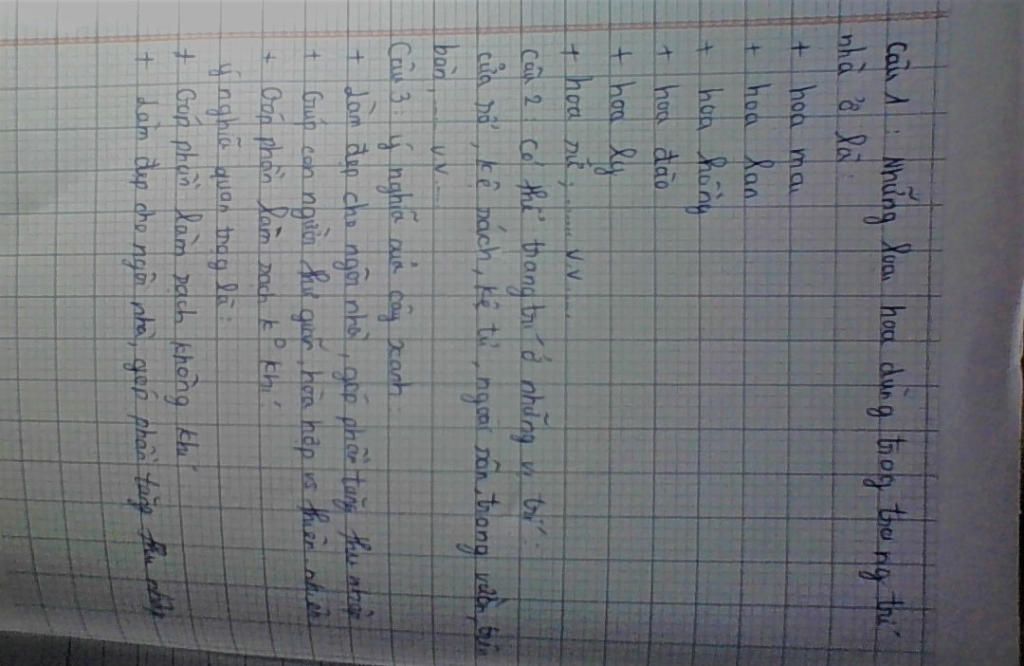 Câu 1: Những loại hoa dùng trog trang trí
nhà ở là:
+ hoa mai
+ hoa lan
+ hoa hồng
+ hoa đào
+ hoa ly
+ hoa sứ, ..... v.v.....
câu 2: có thể trang trí ở những vị trí:
cửa sổ, kệ sách, kệ tủ, ngoài sân, trong vườn, trên
bàn, ..... v.v....
Câu 3: ý nghĩa của cây xanh:
+ Làm đẹp cho ngôi nhà, góp phần tăng thu nhập
+ Giúp con người thư giãn, hòa hợp vs thiên nhiên
+ Góp phần làm sạch k° khí.
ý nghĩa quan trog là:
+ Góp phần làm sạch không khí
+ Làm đẹp cho ngôi nhà, góp phần tăng thu nhập